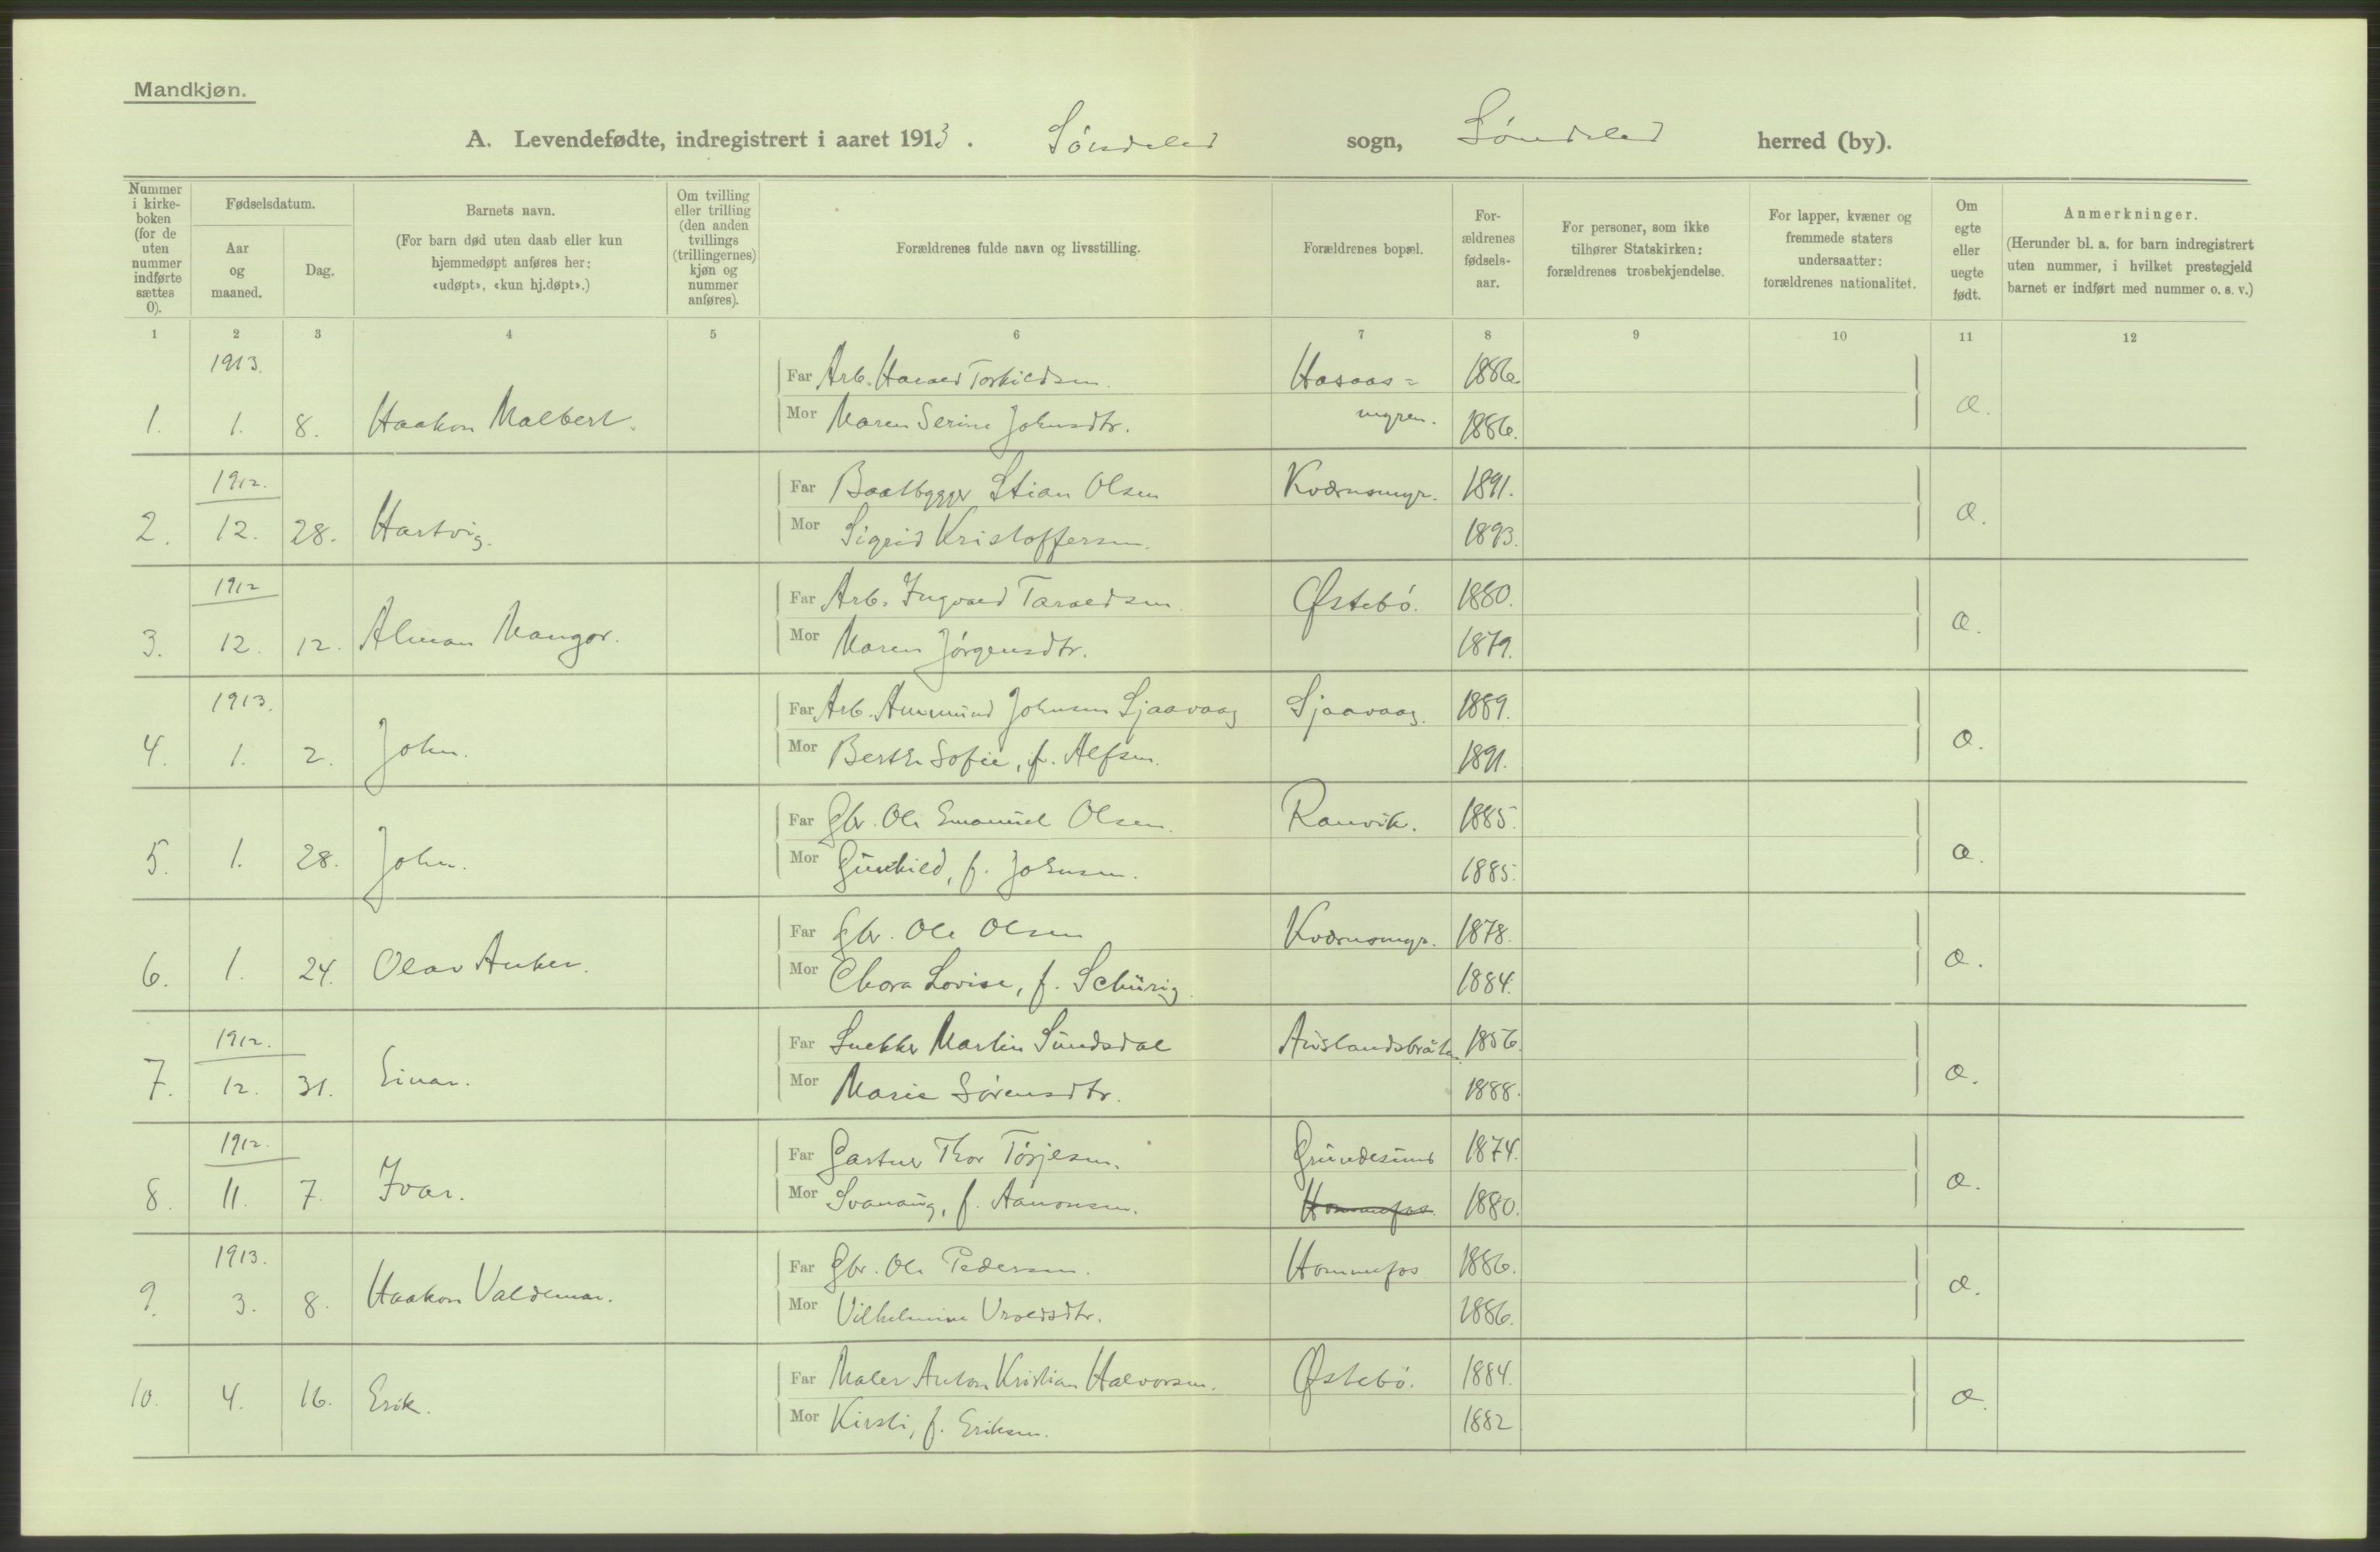 Mandkjøn.
A. Levendefødte, indregistrert i aaret 1913. Søndeled sogn, Søndeled herred (by).
Nummer i kirke-boken (for de uten nummer indførte sættes 0).
Fødselsdatum.
Aar og maaned.
Dag.
Barnets navn.
(For barn død uten daab eller kun hjemmedøpt anføres her: «udøpt», «kun hj.døpt».)
Om tvilling eller trilling (den anden tvillings (trillingernes) kjøn og nummer anføres).
Forældrenes fulde navn og livsstilling.
Forældrenes bopæl.
For-ældrenes fødsels-aar.
For personer, som ikke tilhører Statskirken: forældrenes trosbekjendelse.
For lapper, kvæner og fremmede staters undersaatter: forældrenes nationalitet.
Om egte eller uegte født.
Anmerkninger.
(Herunder bl. a. for barn indregistrert uten nummer, i hvilket prestegjeld barnet er indført med nummer o. s. v.)
1 2 3 4 5 6 7 8 9 10 11 12
1913. Far Arb. Harald Torkildsen. Hasaas= 1886.
1. 1. 8. Haakon Malbert. Mor Maren Serine Johnsdtr. myren. 1886. æ.
1912. Far Baatbygger Stian Olsen Kværnsmyr. 1891.
2. 12. 28. Hartvig. Mor Sigrid Kristoffersen. 1893. æ.
1912 Far Arb. Ingvald Taraldsen. Østebø. 1880.
3. 12. 12. Alman Mangor. Mor Maren Jørgensdtr. 1879. æ.
1913. Far Arb. Ammund Johnsen Sjaavaag Sjaavaag. 1889.
4. 1. 2. John. Mor Berthe Sofie, f. Alfsen. 1891. æ.
Far Gbr. Ole Emanuel Olsen. Ranvik. 1885.
5. 1. 28. John. Mor Gunhild, f. Johnsen. 1885. æ.
Far Gbr. Ole Olsen Kværnsmyr. 1878.
6. 1. 24. Olav Anker. Mor Lovise, f. Schürig. 1884. æ.
1912. Far Snekker Martin Sundsdal 1856.
7. 12. 31. Einar. Mor Marie Sørensdtr. 1888. æ.
1912. Far Gartner Thor Tørjesen. Grundesund 1874.
8. 11. 7. Ivar. Mor Svanaug, f. Aanonsen. Hommefos 1880. æ.
1913. Far Gbr. Ole Pedersen. Hommefos 1886.
9. 3. 8. Haakon Valdemar. Mor Vilhelmine 1886. æ.
Far Maler Anton Kristian Halvorsen. Østebø. 1884.
10. 4. 16. Erik. Mor Kirsti, f. Eriksen. 1882 æ.